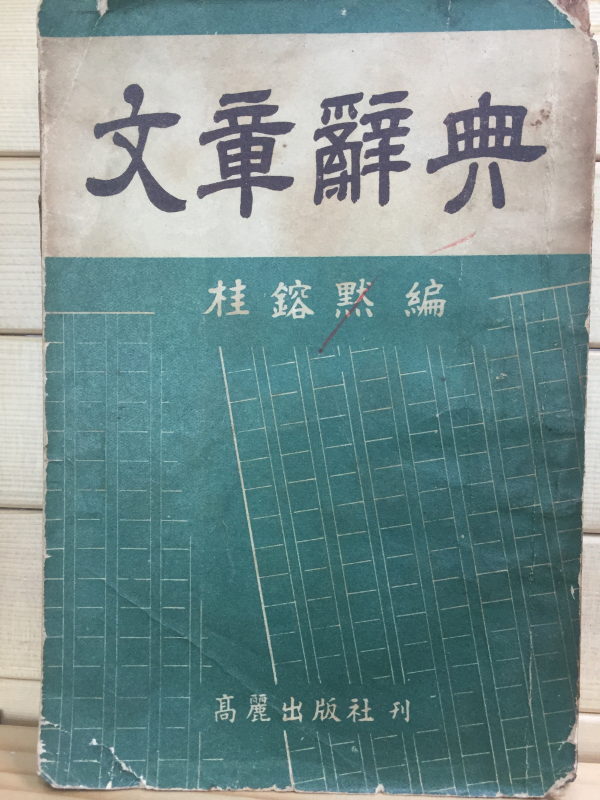 文章辭典
桂鎔黙 編
髙麗出版社 刊